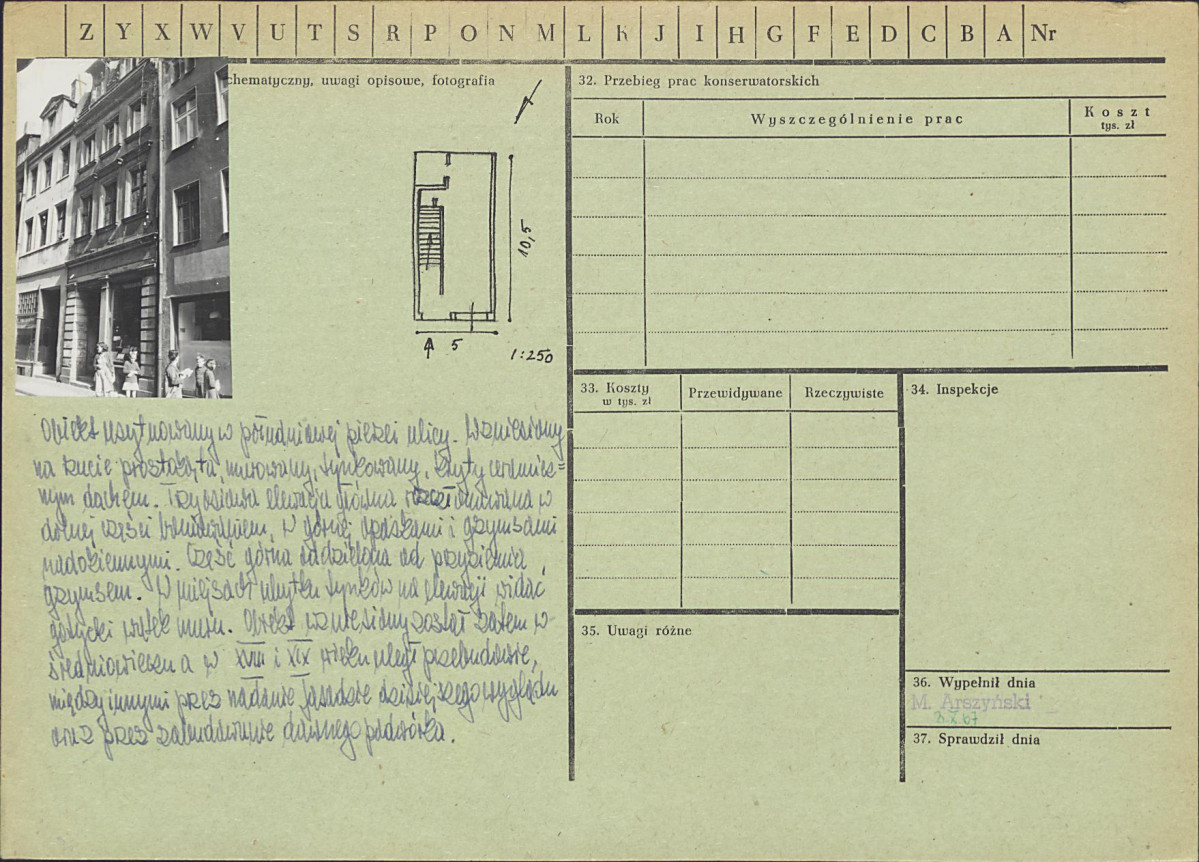 Z Y X W V U T S R P O N M L K J I H G F E D C B A Nr
chematyczny, uwagi opisowe, fotografia
10,5
5
1:250
Obiekt usytuowany w południowej pierzei ulicy. Wzniesiony
na rzucie prostokąta, murowany, tynkowany, kryty ceramicz=
nym dachem. Trzyosiowa elewacja główna rozczłonkowana w
dolnej części boniowaniem, w górnej opaskami i gzymsami
nadokiennymi. Część górna oddzielona od przyziemia
gzymsem. W miejscach ubytku tynków na elewacji widać
gotycki wątek muru. Obiekt wzniesiony został zatem w
średniowieczu a w XVIII i XIX wieku uległ przebudowie,
między innymi przez nadanie fasadzie dzisiejszego wyglądu
oraz przez zabudowanie dawnego podwórka.
32. Przebieg prac konserwatorskich
Rok Wyszczególnienie prac Koszt
tys. zł
33. Koszty
w tys. zł
Przewidywane Rzeczywiste
34. Inspekcje
35. Uwagi różne
36. Wypełnił dnia
M. Arszyński
37. Sprawdził dnia